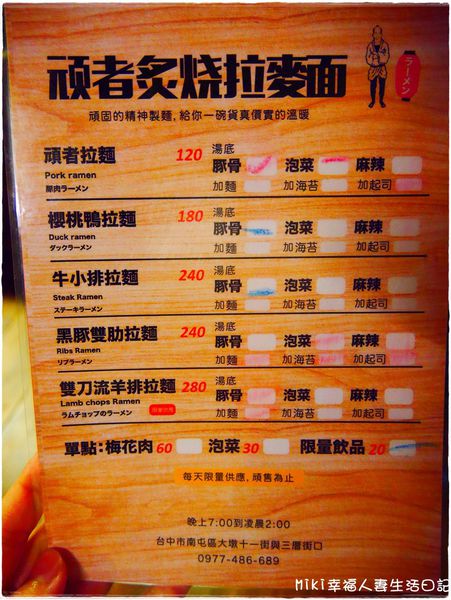 頑者炙燒拉麥面
ラーメン
頑固的精神製麵，給你一碗貨真價實的溫暖
頑者拉麵 120 湯底
Pork ramen 豚骨 泡菜 麻辣
豚肉ラーメン 加麵 加海苔 加起司
櫻桃鴨拉麵 180 湯底
Duck ramen 豚骨 泡菜 麻辣
ダックラーメン 加麵 加海苔 加起司
牛小排拉麵 240 湯底
Steak Ramen 豚骨 泡菜 麻辣
ステーキラーメン 加麵 加海苔 加起司
黑豚雙肋拉麵 240 湯底
Ribs Ramen 豚骨 泡菜 麻辣
リブラーメン 加麵 加海苔 加起司
雙刀流羊排拉麵 280 湯底
Lamb chops Ramen 豚骨 泡菜 麻辣
ラムチョップのラーメン 加麵 加海苔 加起司
單點：梅花肉 60 泡菜 30 限量飲品 20
每天限量供應，頑售為止
晚上7:00到凌晨2:00
台中市南屯區大墩十一街與三厝街口
0977-486-689
Miki幸福人妻生活日記